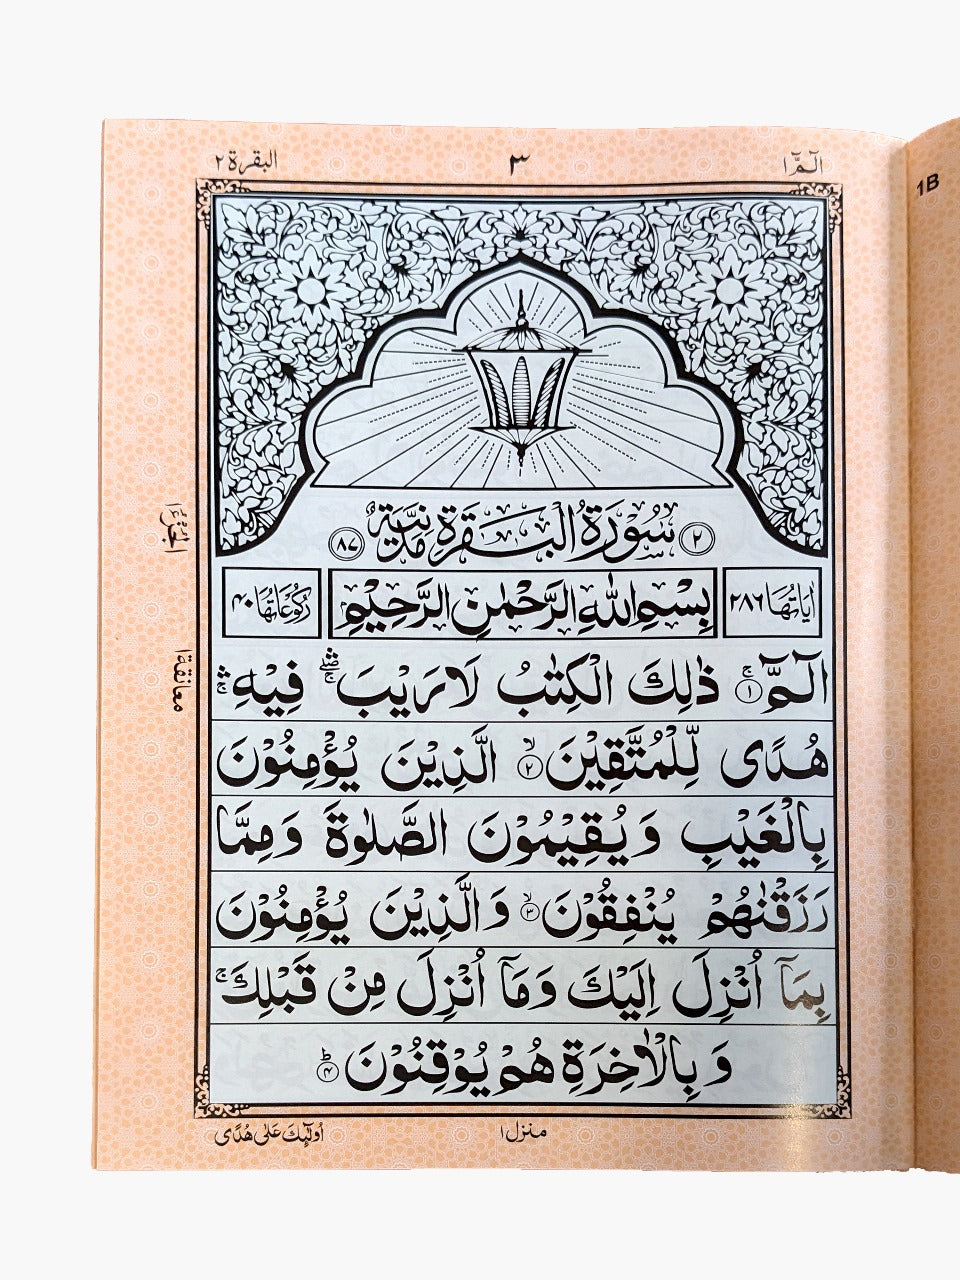 الٓمّٓ ۱
۳
البقرة ۲
1B
۲ سُوْرَةُ الْبَقَرَةِ مَدَنِيَّةٌ ۸۷
اٰیَاتُهَا ۲۸۶
بِسْمِ اللهِ الرَّحْمٰنِ الرَّحِيْمِ
رُكُوْعَاتُهَا ۴۰
الٓمّٓ ۚ﴿۱﴾ ذٰلِكَ الْكِتٰبُ لَا رَيْبَ ۛۖۚ فِيْهِ ۛۚ
هُدًى لِّلْمُتَّقِيْنَ ۙ﴿۲﴾ الَّذِيْنَ يُؤْمِنُوْنَ
بِالْغَيْبِ وَيُقِيْمُوْنَ الصَّلٰوةَ وَمِمَّا
رَزَقْنٰهُمْ يُنْفِقُوْنَ ۙ﴿۳﴾ وَالَّذِيْنَ يُؤْمِنُوْنَ
بِمَآ اُنْزِلَ اِلَيْكَ وَمَآ اُنْزِلَ مِنْ قَبْلِكَ ۚ
وَبِالْاٰخِرَةِ هُمْ يُوْقِنُوْنَ ؕ﴿۴﴾
الْجُزْءُ ۱
معانقة ۱
منزل ۱
اُولٰٓئِكَ عَلٰى هُدًى